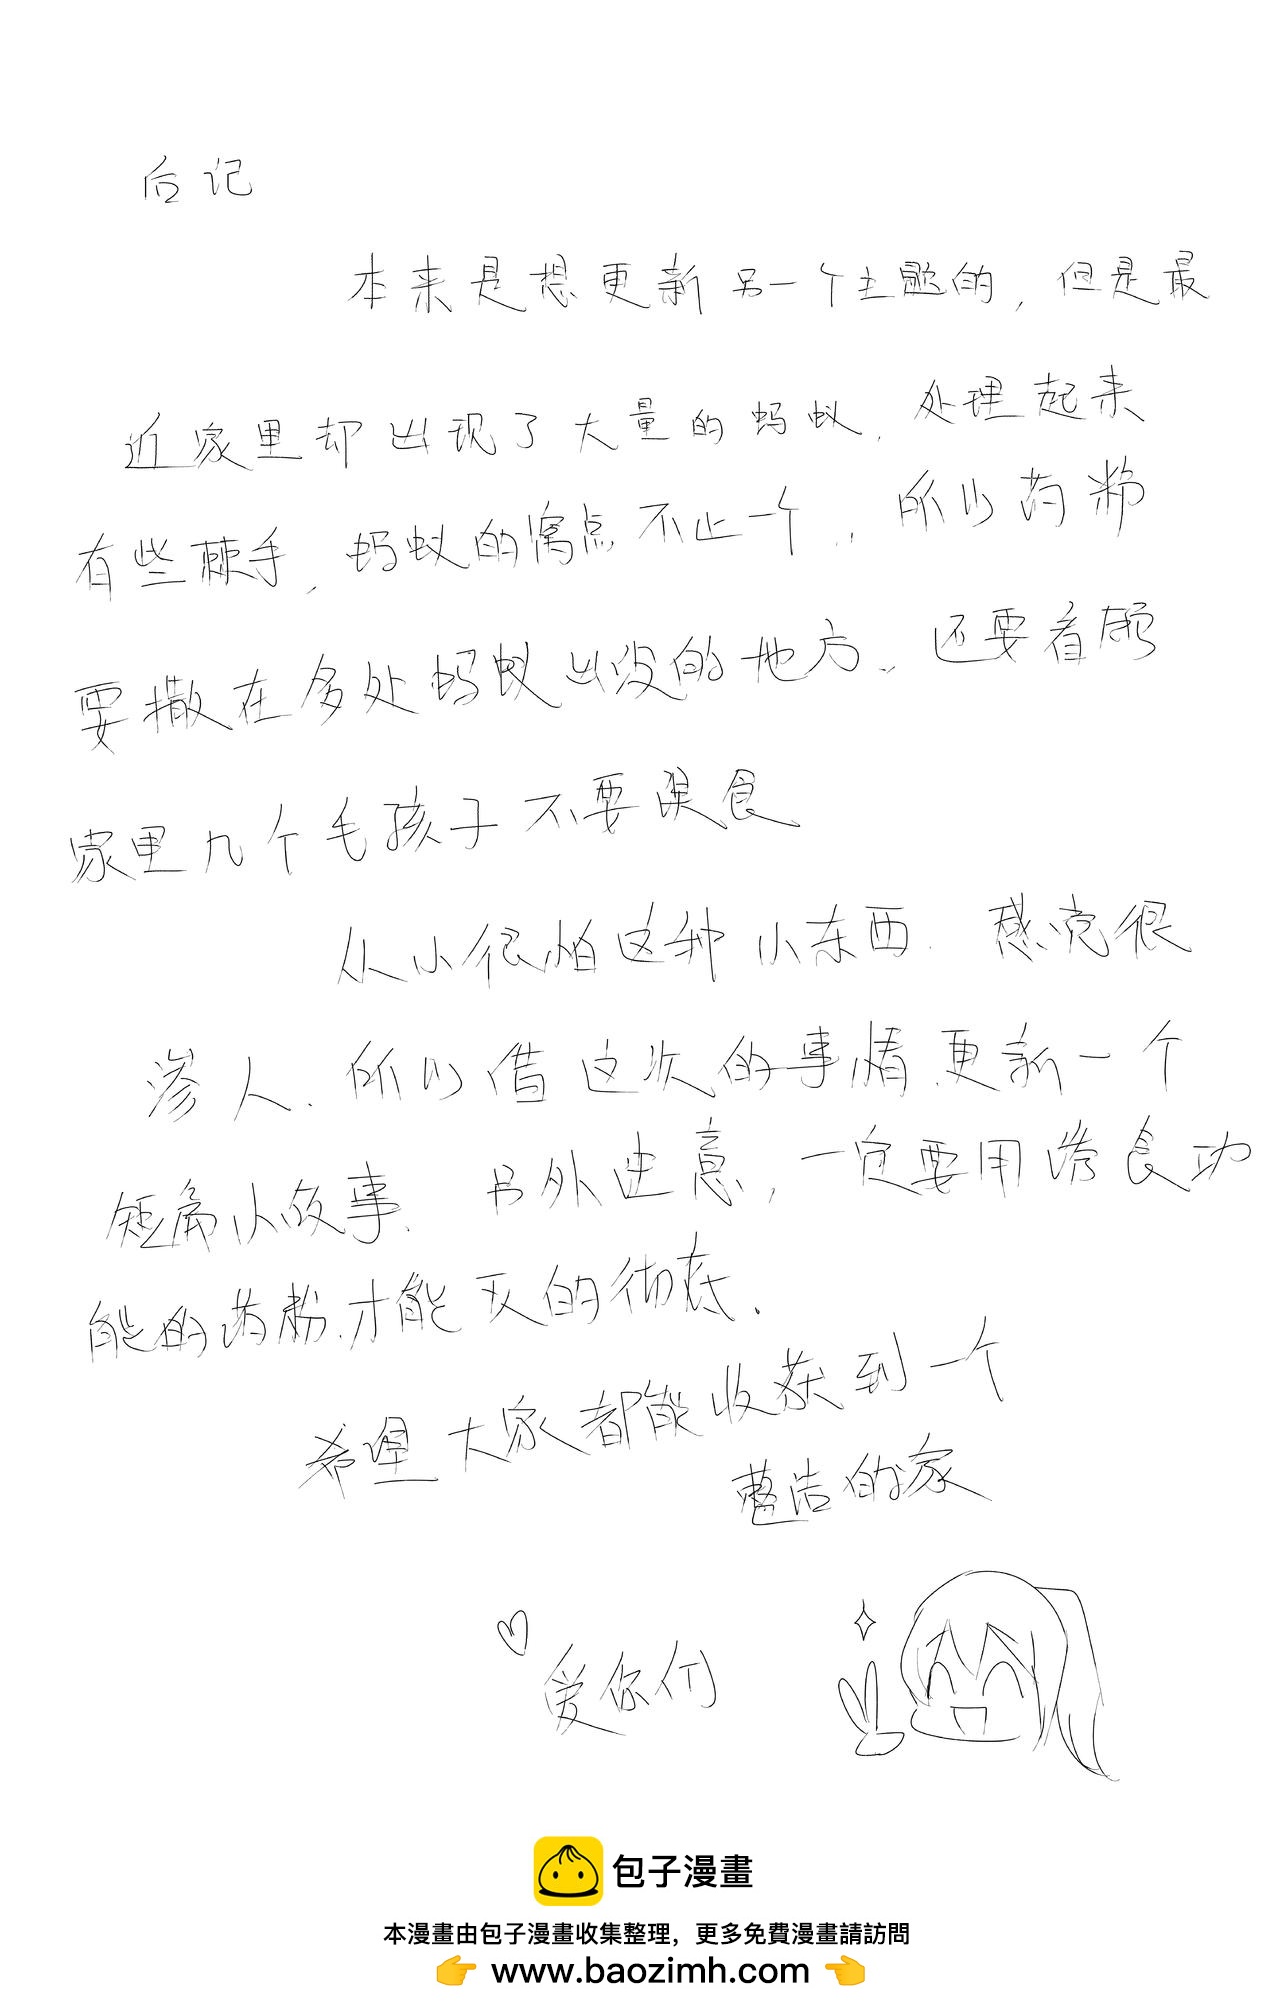 后记
本来是想更新另一个主题的，但是最
近家里却出现了大量的蚂蚁，处理起来
有些棘手，蚂蚁的窝点不止一个，所以药粉
要撒在多处蚂蚁出没的地方，还要看顾
家里几个毛孩子不要误食
从小很怕这种小东西，感觉很
渗人，所以借这次的事情更新一个
短篇小故事，另外建意，一定要用诱食功
能的药粉，才能灭的彻底．
希望大家都能收获到一个
整洁的家
爱你们
包子漫畫
本漫畫由包子漫畫收集整理，更多免費漫畫請訪問
www.baozimh.com